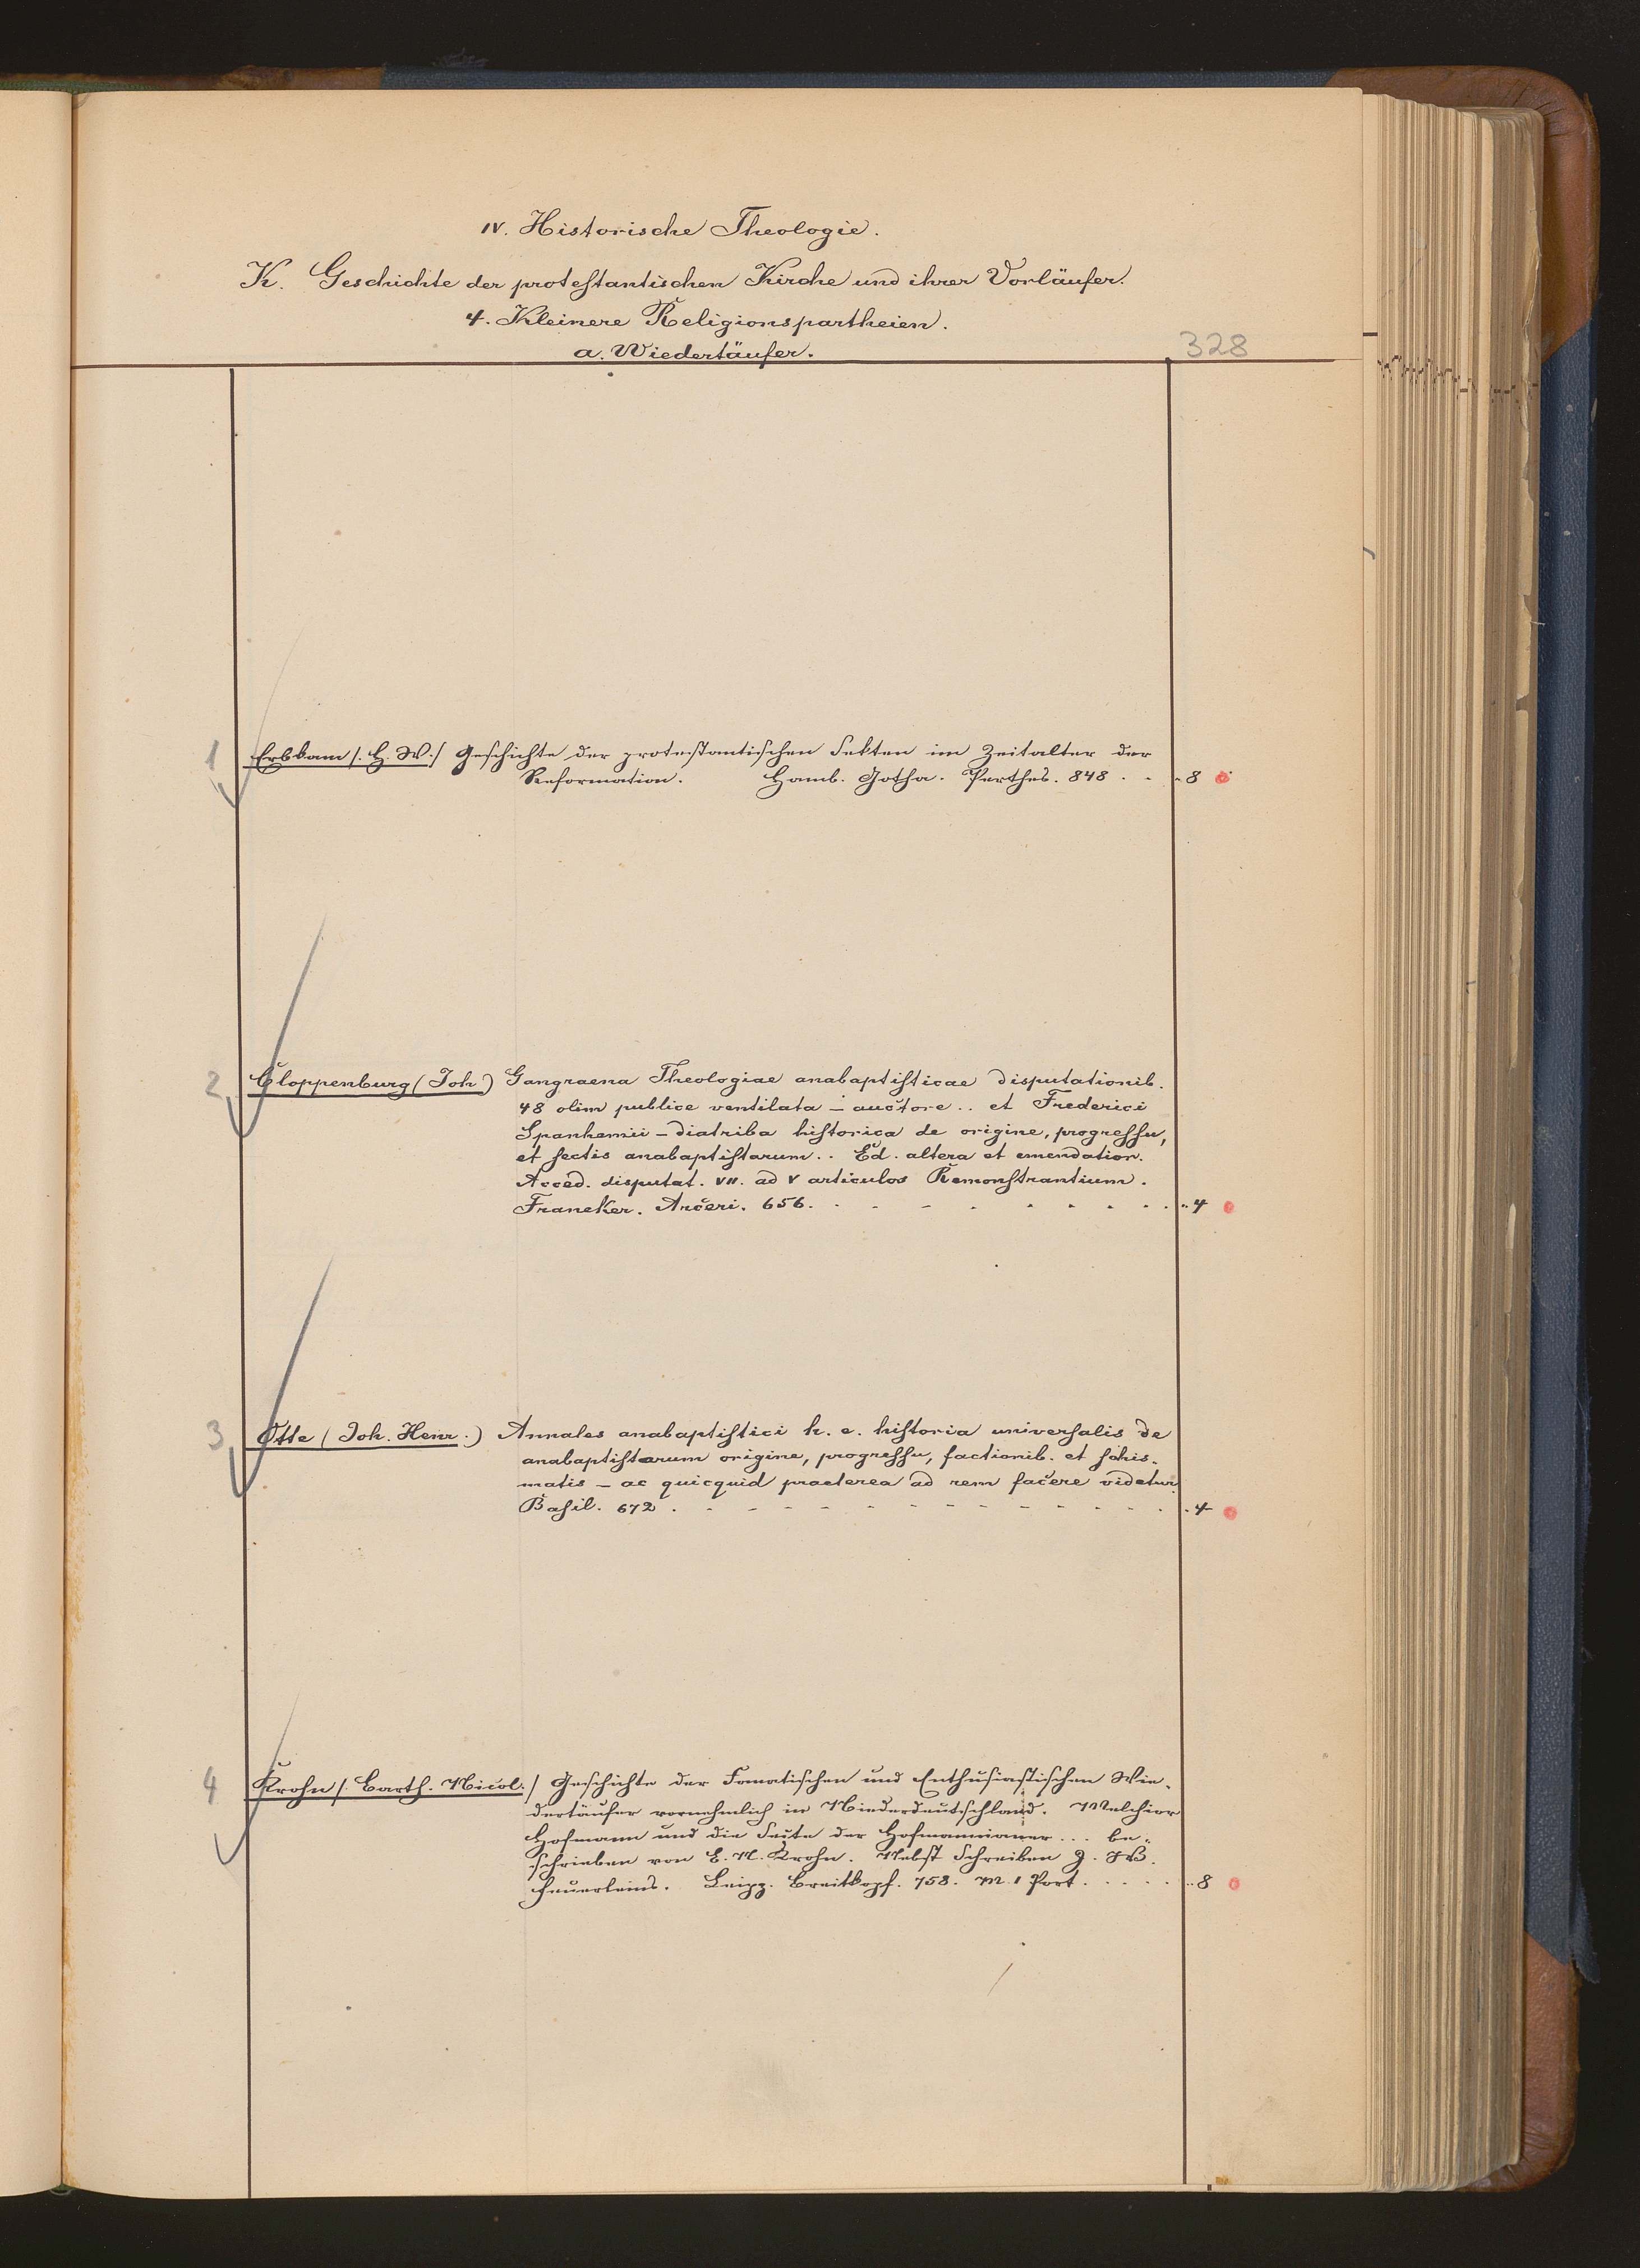 IV. Historische Theologie.
K. Geschichte der protestantischen Kirche und ihrer Vorläufer.
4. Kleinere Religionspartheien.
a. Wiedertäufer.
328
1 Erbkam /. H. W./ Geschichte der protestantischen Sekten im Zeitalter der
Reformation. Hamb. Gotha. Perthes. 848 . - "8
2 Cloppenburg (Joh) Gangraena Theologiae anabaptisticae disputationib.
48 olim publice ventilata – auctore .. et Frederici
Spanhemii – diatriba historica de origine, progressu,
et sectis anabaptistarum .. Ed. altera et emendatior.
Acced. disputat. VII. ad V articulos Remonstrantium.
Franeker. Arceri. 656. . - - . . . . . "4
3 Otte (Joh. Henr.) Annales anabaptistici h. e. historia universalis de
anabaptistarum origine, progressu, factionib. et schis-
matis – ac quicquid praeterea ad rem facere videtur.
Basil. 672 . - - - - - - - - - - . . "4
4 Krohn /. Barth. Nicol./ Geschichte der Fanatischen und Enthusiastischen Wie-
dertäufer vornehmlich in Niederdeutschland. Melchior
Hofmann und die Secte der Hofmannianer ... be-
schrieben von B. N. Krohn. Nebst Schreiben J. W.
Feuerleins. Leipz. Breitkopf. 758. M. 1 Port. . . . . "8